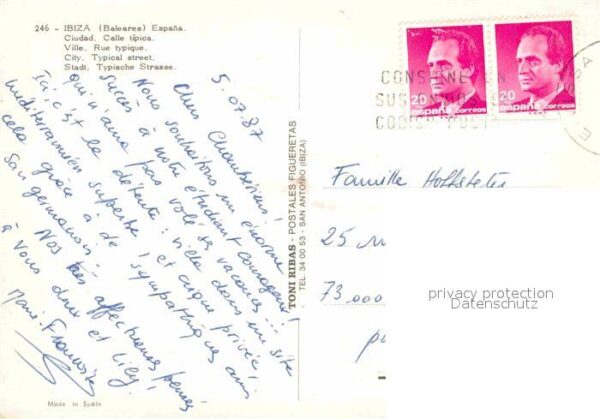 246 - IBIZA (Baleares) España.
Ciudad. Calle típica.
Ville. Rue typique.
City. Typical street.
Stadt. Typische Strasse.
5.07.87
Chers Chambériens!
Nous souhaitons un énorme
succès à notre étudiant courageux!
qui n'aura pas volé ses vacances!
Ici, c'est la détente: villa dans un site
méditerranéen superbe! et crique privée,
cela grâce à de sympathiques amis
San germanois. Nos très affectueuses pensées
à Vous deux et Lily!
Marie-Françoise
Made in Spain
TONI RIBAS - POSTALES FIGUERETAS
TEL. 34 00 53 - SAN ANTONIO (IBIZA)
20 españa correos
20 españa correos
CONSIGNE EN
SUS
CODIGO POST
Famille Hoffstetter
25
73.000
privacy protection
Datenschutz